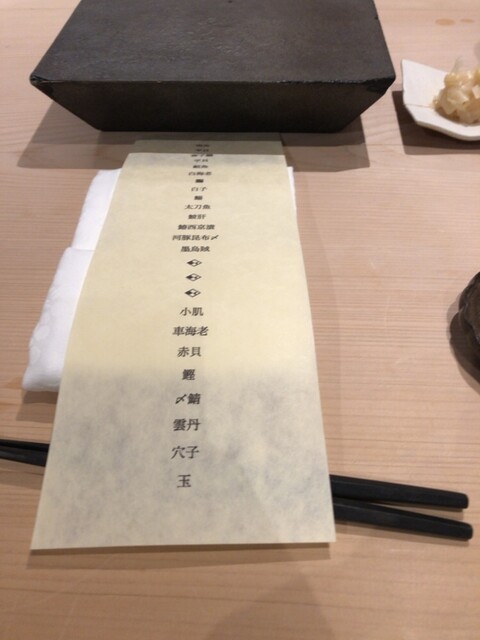 白海老
白子
太刀魚
鮟肝
鰆西京漬
河豚昆布〆
墨烏賊
小肌
車海老
赤貝
鰹
〆鯖
雲丹
穴子
玉